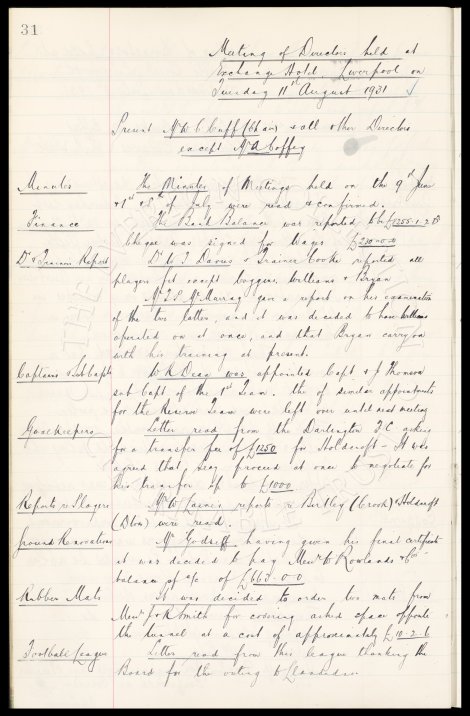 31
Meeting of Directors held at
Exchange Hotel Liverpool on
Tuesday 11th August 1931
Present Mr W C Cuff (Chair) & all other Directors
except Mr A Coffey
Minutes The Minutes of Meetings held on the 9th June
& 1st & of July were read & confirmed.
Finance The Bank Balance was reported to be
Cheque was signed for Wages £230-0-0
Dr & Trainers Report Dr Davies & Trainer Cooke reported all
players fit except Coggins, Williams & Bryan
Mr McMurray gave a report on his examination
of the two latter, and it was decided to have Williams
operated on at once, and that Bryan carry on
with his training at present.
Captains & Sub Capts W R Dean was appointed Capt & J Thomson
sub Capt of the 1st Team. the of similar appointments
for the Reserve Team were left over until next meeting
Goalkeepers Letter read from the Darlington F C asking
for a transfer fee of £1250 for Holdcroft - It was
agreed that Secy proceed at once to negotiate for
his transfer up to £1000
Reports re Players Mr W reports re (Crook) & Holdcroft
(Dton) were read.
Ground Renovations Mr having given his final certificate
it was decided to pay Messrs W Rowlands &
balance of a/c of £663-0-0
Rubber Mats It was decided to order two mats from
Messrs J & R Smith for covering space opposite
the tunnel at a cost of approximately £10-2-6
Football League Letter read from this league thanking the
Board for the voting to